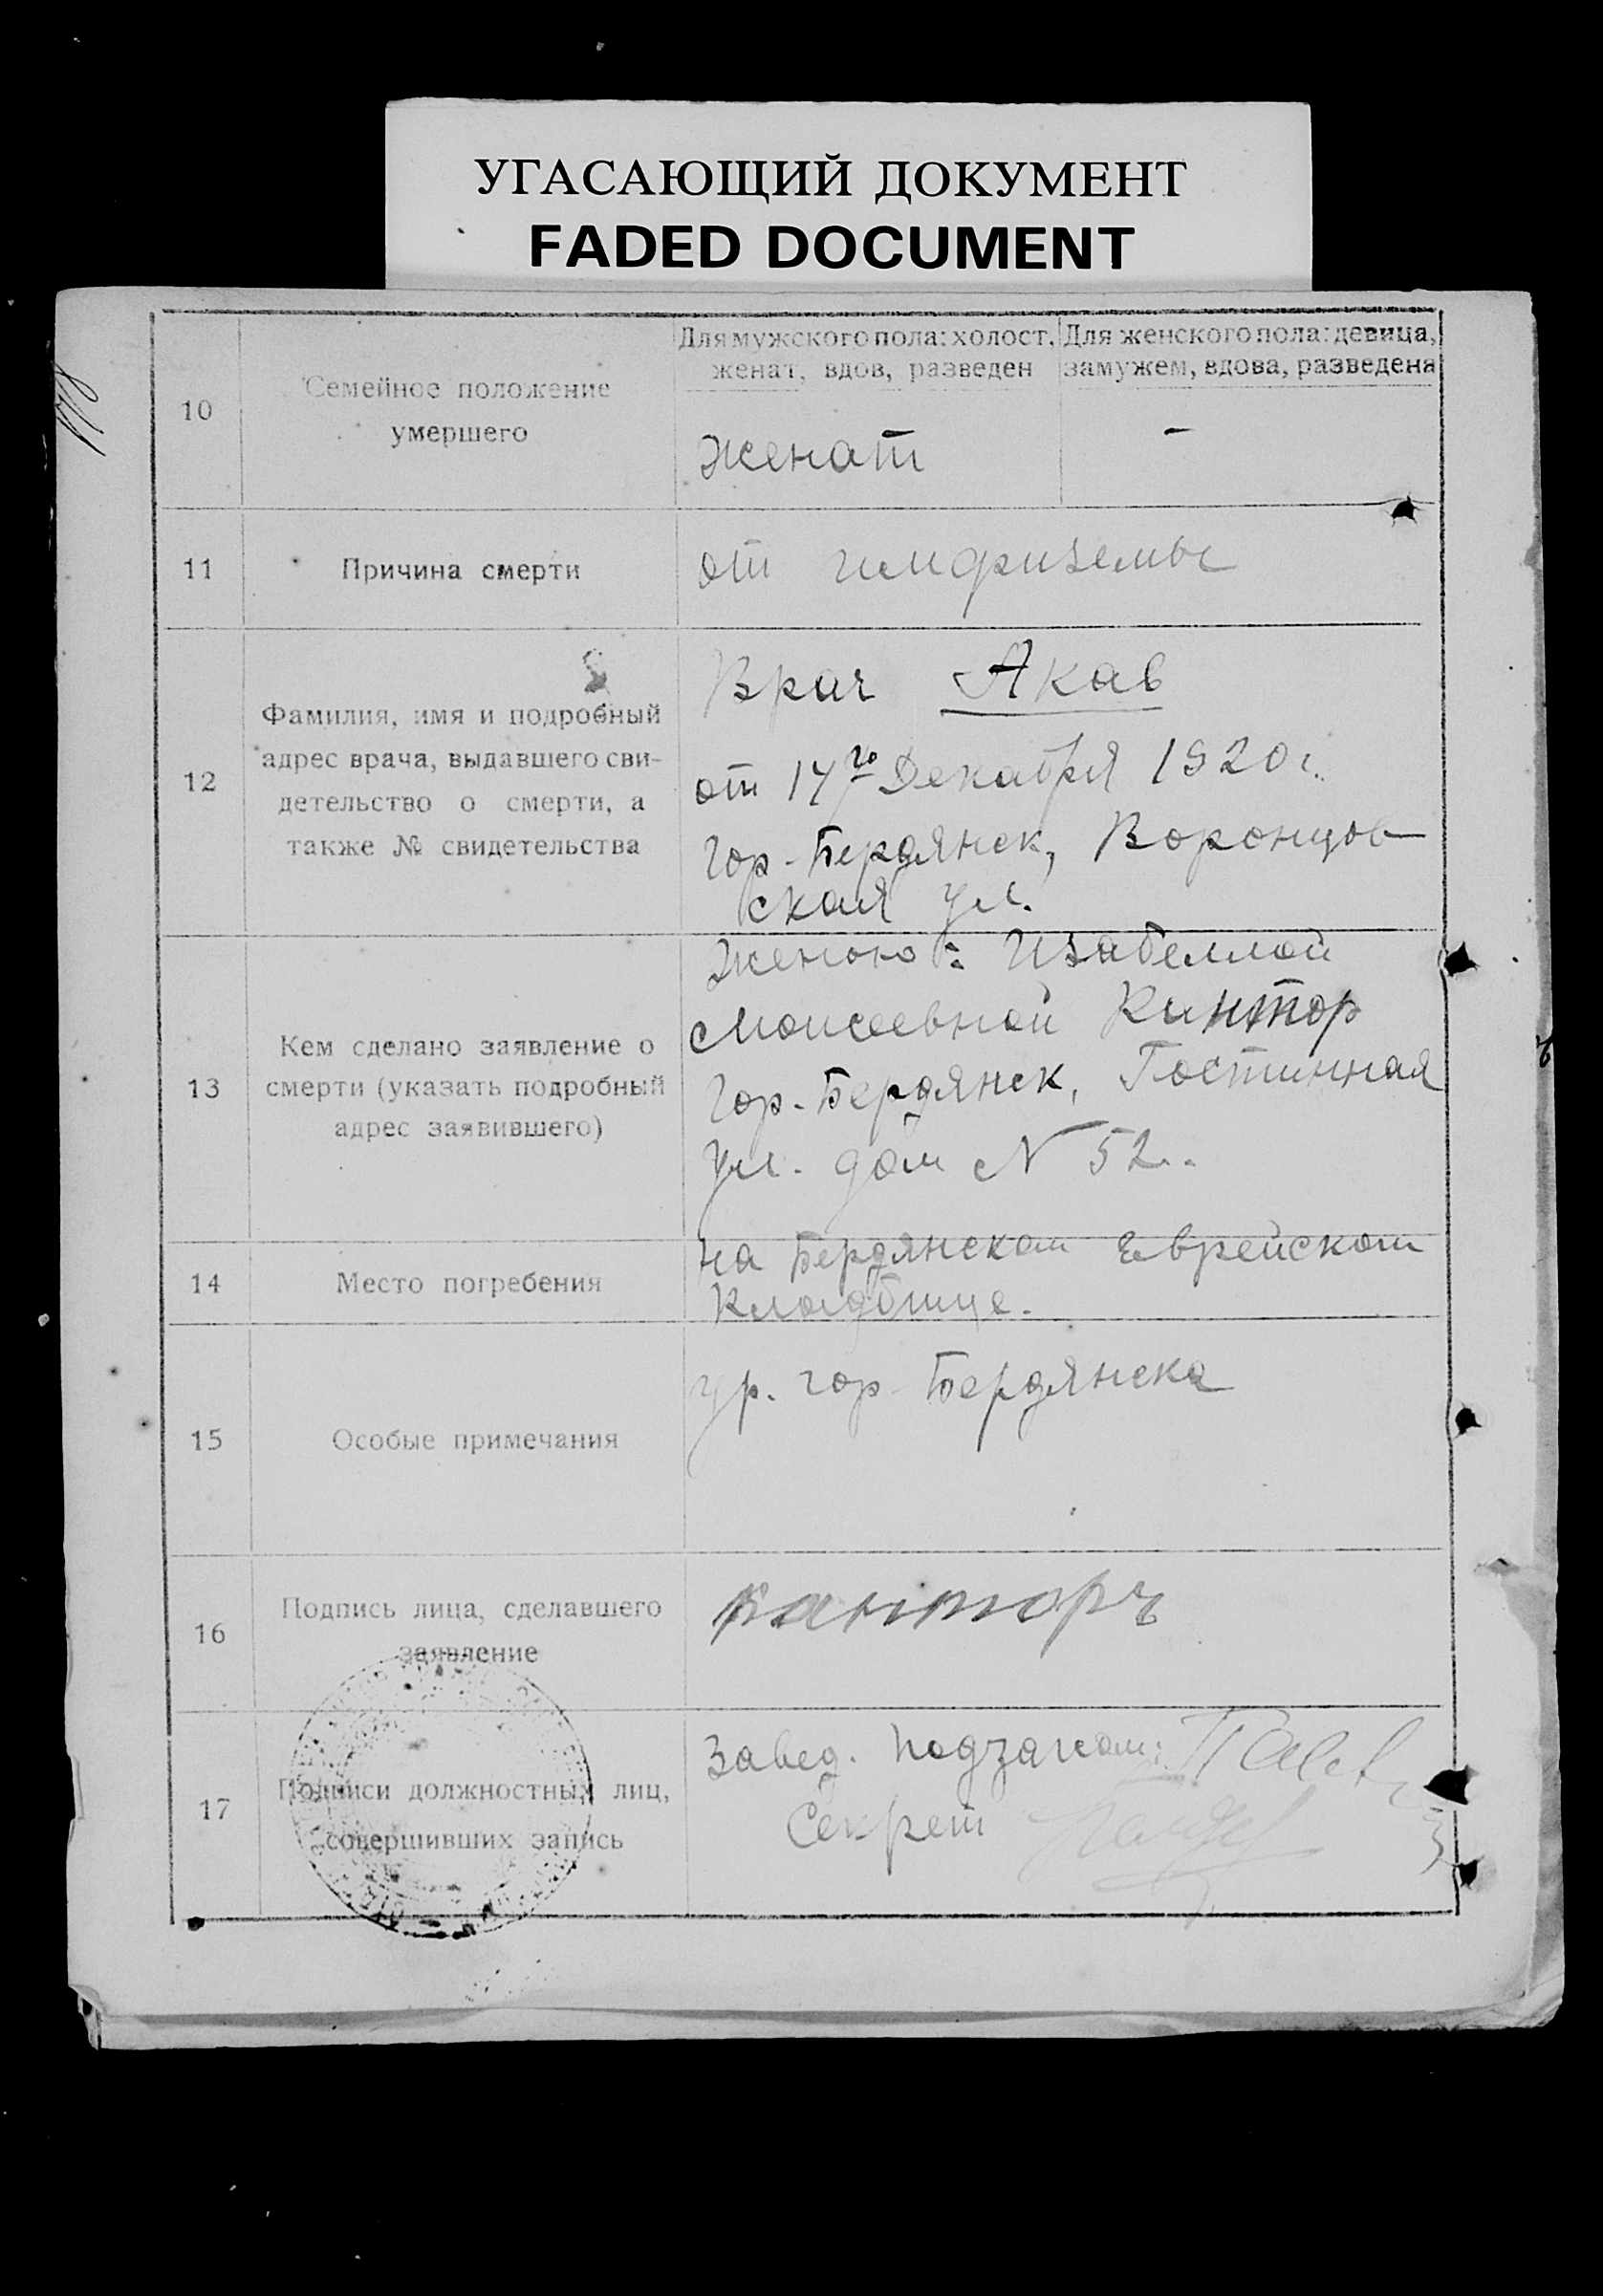 УГАСАЮЩИЙ ДОКУМЕНТ
FADED DOCUMENT
10
Семейное положение
умершего
Для мужского пола: холост,
женат, вдов, разведен
Для женского пола: девица,
замужем, вдова, разведена
Женат
-
11
Причина смерти
от
12
Фамилия, имя и подробный
адрес врача, выдавшего сви-
детельство о смерти, а
также № свидетельства
Врач Акав
от 14го Декабря 1920 г.
гор. Бердянск, Воронцов
ская ул.
13
Кем сделано заявление о
смерти (указать подробный
адрес заявившего)
Женою: Изабеллой
Моисеевной Кантор
гор. Бердянск, Гостинная
ул. дом N 52.
14
Место погребения
на Бердянском Еврейском
Кладбище.
15
Особые примечания
ур. гор. Бердянска
16
Подпись лица, сделавшего
заявление
Канторъ
17
Подписи должностных лиц,
совершивших запись
Завед. Подзагсом:
Секрет